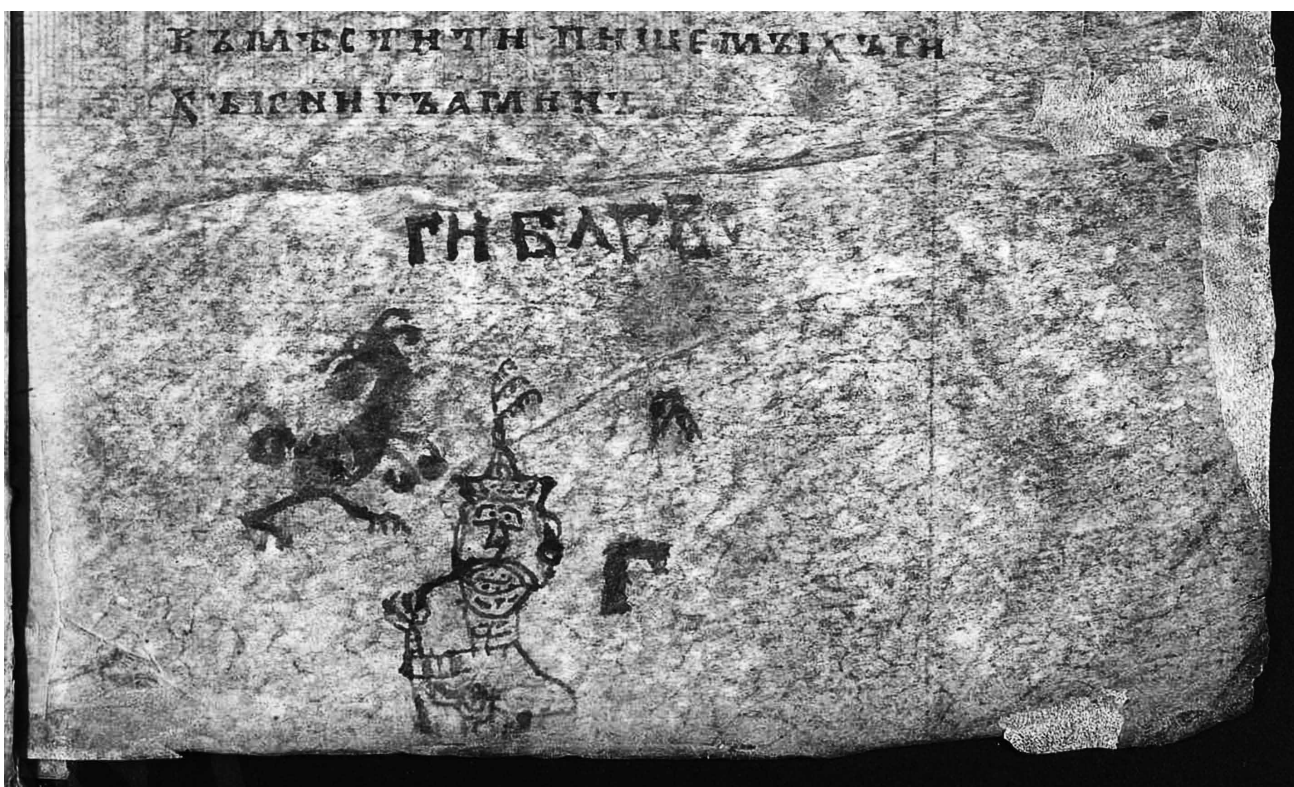 ВЪМѢСТИТИ ПИШЕМЫХЪ СИ
ХЪ КНИГЪ АМИНЪ
ГИ БЛГВ
Л
Г